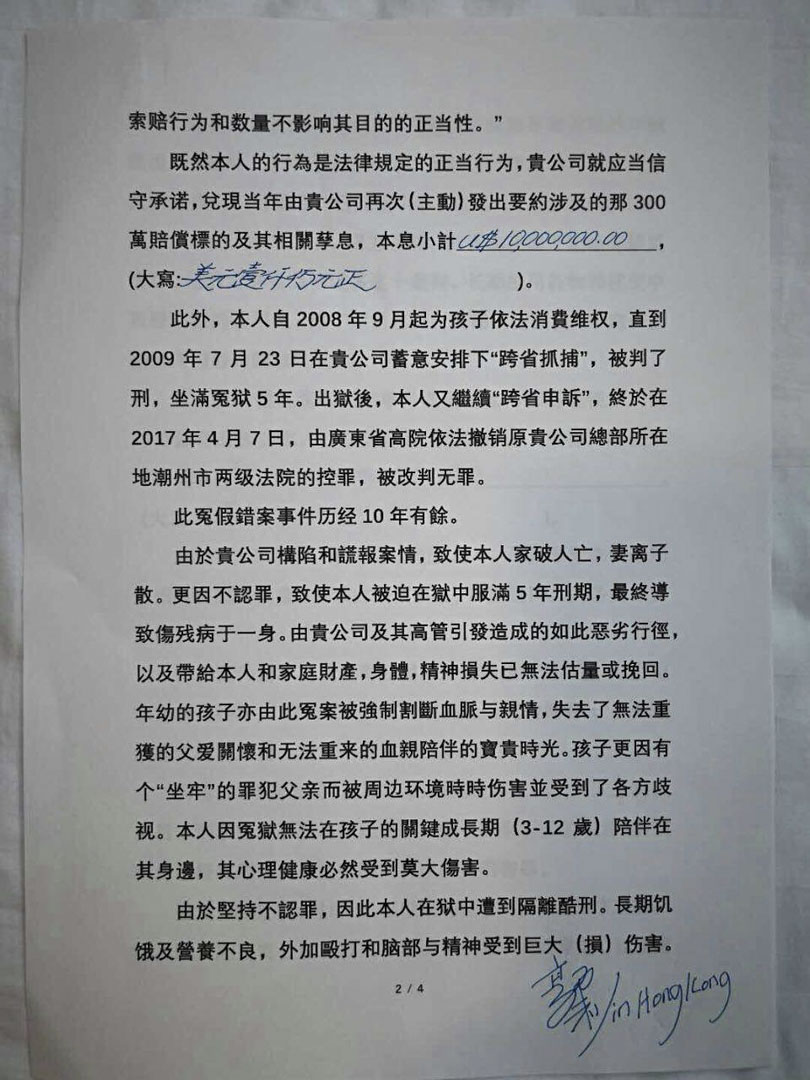 索赔行为和数量不影响其目的的正当性。”
既然本人的行為是法律規定的正当行为，貴公司就应当信
守承诺，兌現当年由貴公司再次（主動）發出要約涉及的那 300
萬賠償標的及其相關孳息，本息小計 U$10,000,000.00 ，
(大寫:美元壹仟万元正 )。
此外，本人自 2008 年 9 月起为孩子依法消費维权，直到
2009 年 7 月 23 日在貴公司蓄意安排下“跨省抓捕”，被判了
刑，坐滿冤狱 5 年。出獄後，本人又繼續“跨省申訴”，終於在
2017 年 4 月 7 日，由廣東省高院依法撤销原貴公司總部所在
地潮州市两级法院的控罪，被改判无罪。
此冤假錯案事件历经 10 年有餘。
由於貴公司構陷和謊報案情，致使本人家破人亡，妻离子
散。更因不認罪，致使本人被迫在獄中服滿 5 年刑期，最終導
致傷残病于一身。由貴公司及其高管引發造成的如此惡劣行徑，
以及帶給本人和家庭財產，身體，精神損失已無法估量或挽回。
年幼的孩子亦由此冤案被強制割斷血脈与親情，失去了無法重
獲的父爱關懷和无法重来的血親陪伴的寶貴時光。孩子更因有
个“坐牢”的罪犯父亲而被周边环境時時伤害並受到了各方歧
视。本人因冤獄無法在孩子的關鍵成長期（3-12 歲）陪伴在
其身邊，其心理健康必然受到莫大傷害。
由於堅持不認罪，因此本人在獄中遭到隔離酷刑。長期饥
饿及營養不良，外加毆打和脑部与精神受到巨大（損）伤害。
2 / 4
/in Hong Kong